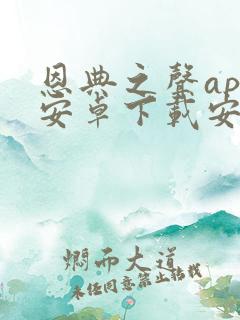 恩典之聲ap
安卓下載安
爛而大道
未经同意禁止转载